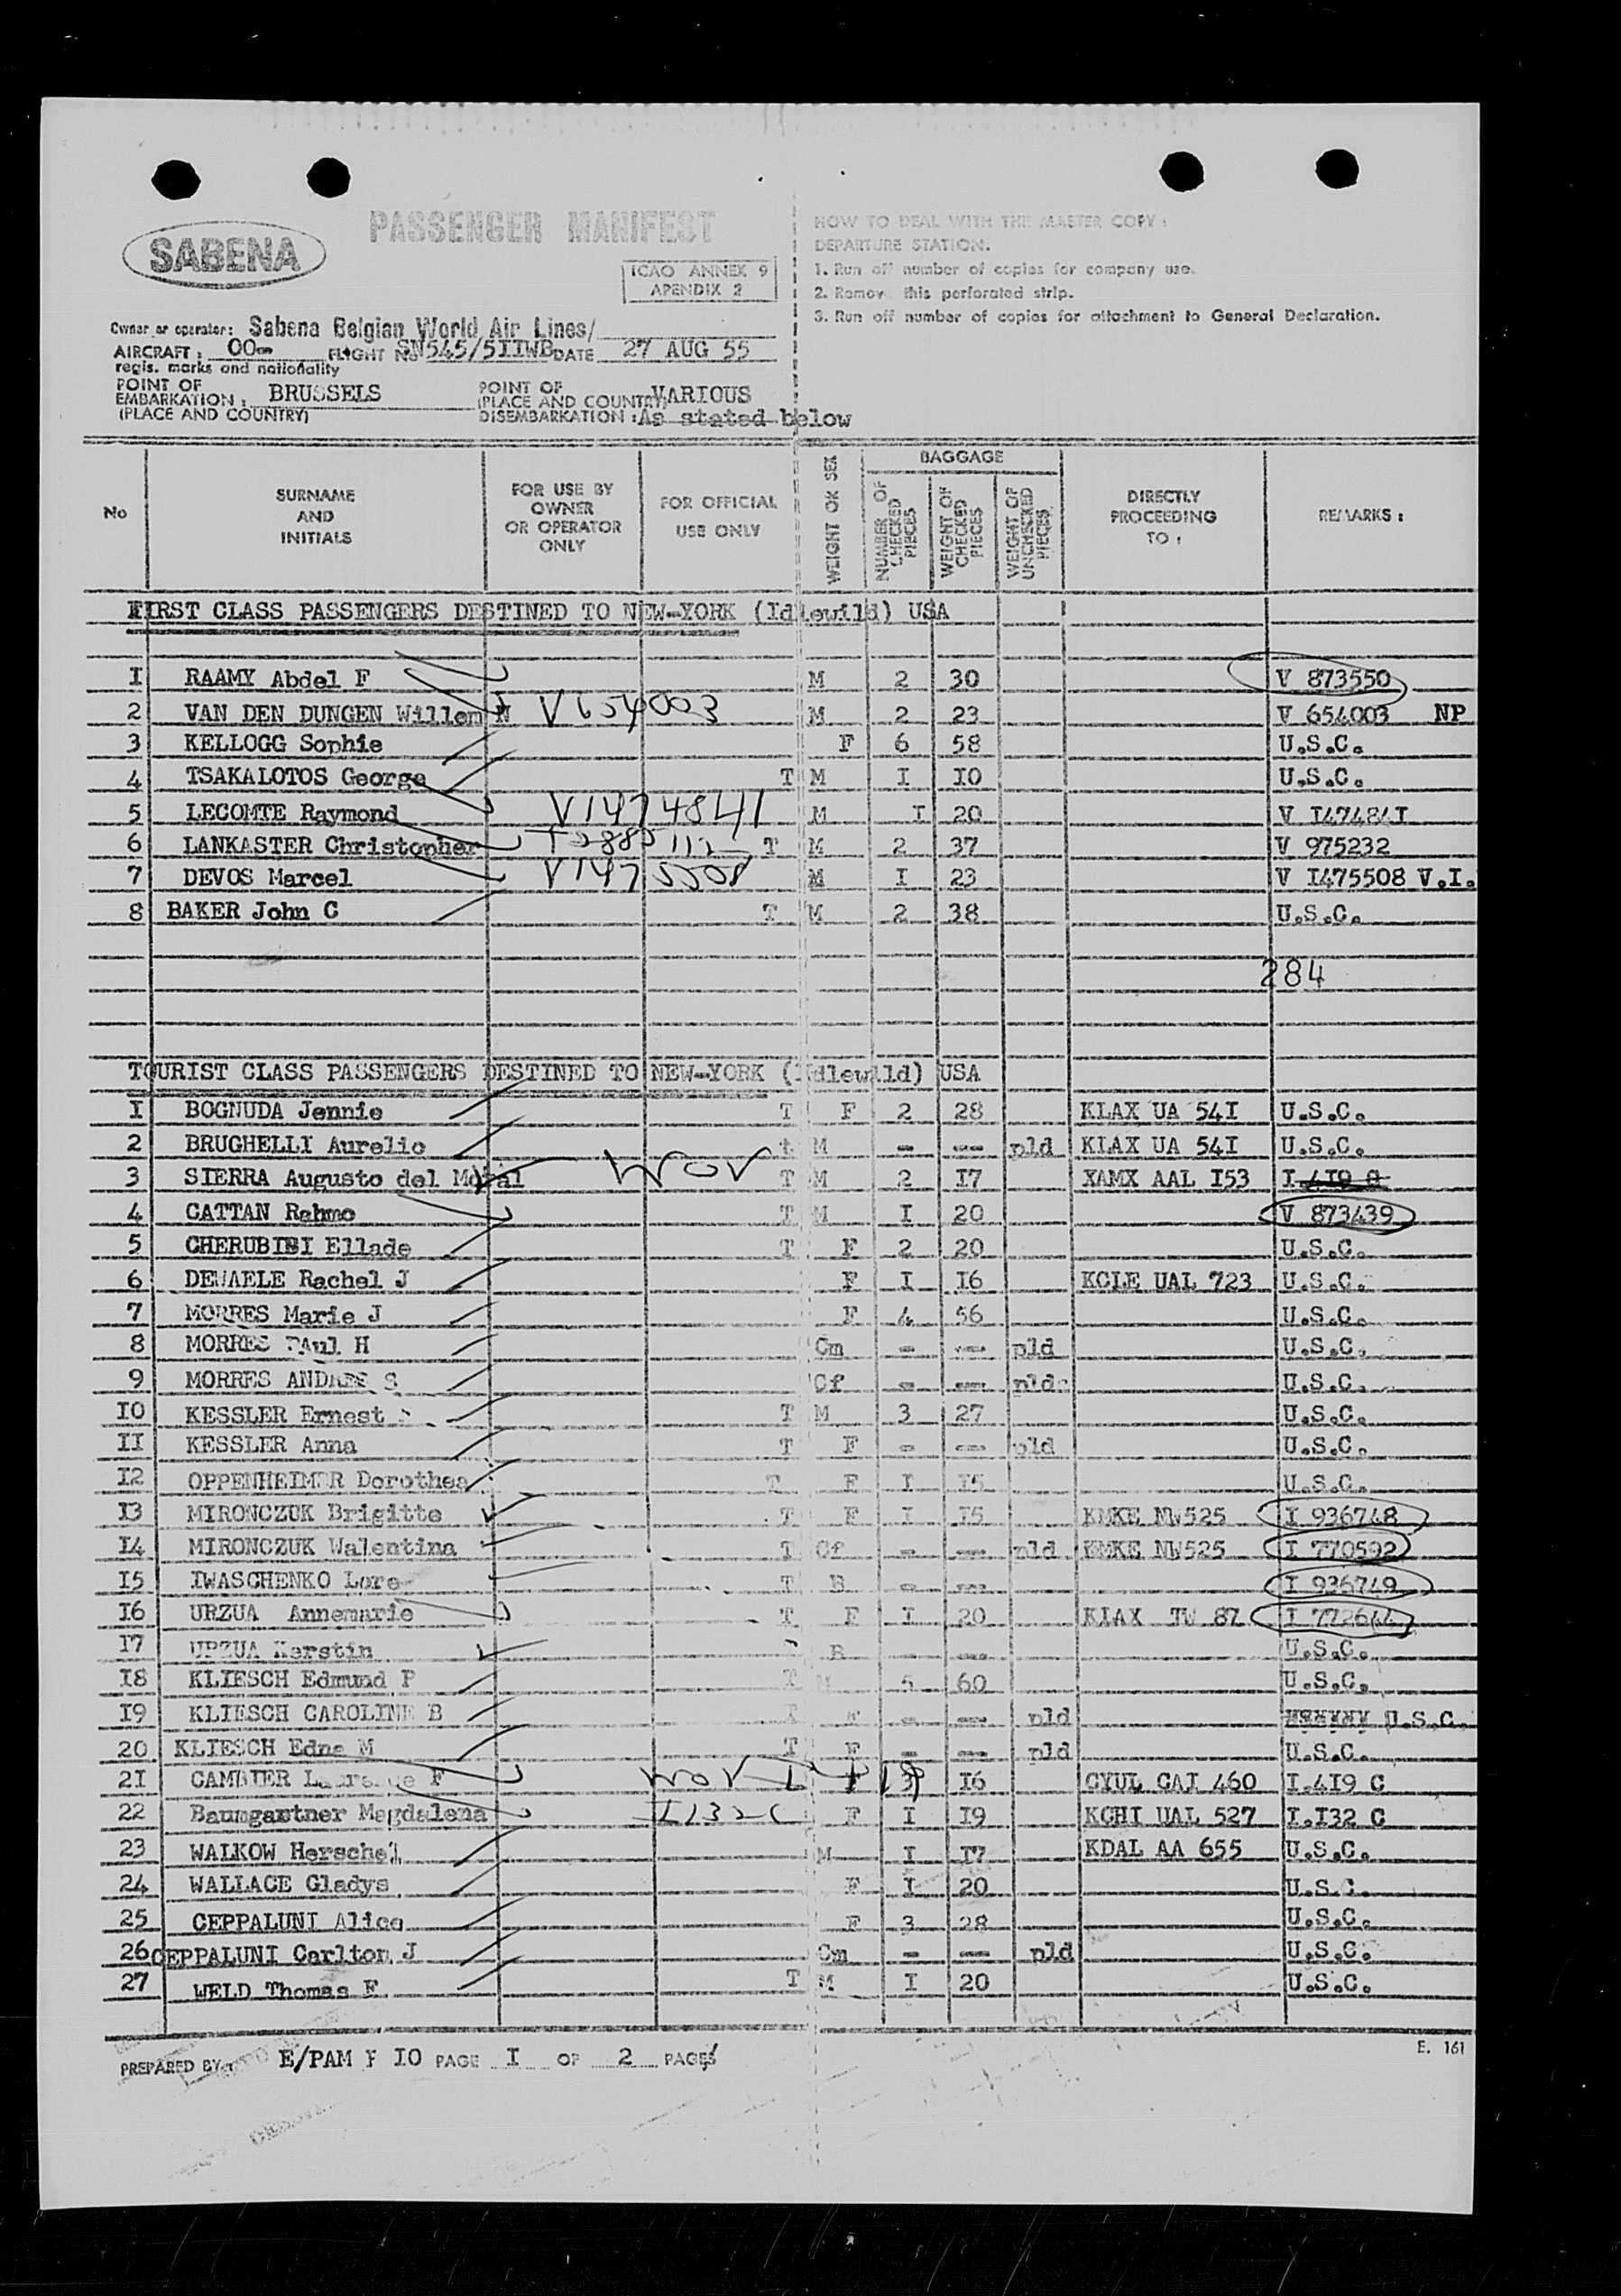 SABENA
PASSENGER MANIFEST
ICAO ANNEX 9
APENDIX 2
HOW TO DEAL WITH THE MASTER COPY :
DEPARTURE STATION.
1. Run off number of copies for company use.
2. Remove this perforated strip.
3. Run off number of copies for attachment to General Declaration.
Owner or operator: Sabena Belgian World Air Lines/
AIRCRAFT : OO- FLIGHT No SN545/5IIWB DATE 27 AUG 55
regis. marks and nationality
POINT OF EMBARKATION : BRUSSELS POINT OF (PLACE AND COUNTRY) VARIOUS
(PLACE AND COUNTRY) DISEMBARKATION : As stated below
No SURNAME AND INITIALS FOR USE BY OWNER OR OPERATOR ONLY FOR OFFICIAL USE ONLY WEIGHT OR SEX BAGGAGE NUMBER OF CHECKED PIECES WEIGHT OF CHECKED PIECES WEIGHT OF UNCHECKED PIECES DIRECTLY PROCEEDING TO : REMARKS :
FIRST CLASS PASSENGERS DESTINED TO NEW-YORK (Idlewild) USA
I RAAMY Abdel F M 2 30 V 873550
2 VAN DEN DUNGEN Willem N V654003 M 2 23 V 654003 NP
3 KELLOGG Sophie F 6 58 U.S.C.
4 TSAKALOTOS George T M I IO U.S.C.
5 LECOMTE Raymond V1474841 M I 20 V I47484I
6 LANKASTER Christopher T M 2 37 V 975232
7 DEVOS Marcel V1475508 M I 23 V I475508 V.I.
8 BAKER John C T M 2 38 U.S.C.
284
TOURIST CLASS PASSENGERS DESTINED TO NEW-YORK (Idlewild) USA
I BOGNUDA Jennie T F 2 28 KLAX UA 54I U.S.C.
2 BRUGHELLI Aurelio t M - --- pld KLAX UA 54I U.S.C.
3 SIERRA Augusto del Moral WOV T M 2 I7 XAMX AAL I53 I.4I9 C
4 CATTAN Rahmo T M I 20 V 873439
5 CHERUBINI Ellade T F 2 20 U.S.C.
6 DEWAELE Rachel J F I I6 KCLE UAL 723 U.S.C.
7 MORRES Marie J F 4 56 U.S.C.
8 MORRES PAul H Cm - --- pld U.S.C.
9 MORRES ANDREE S Cf - --- pld U.S.C.
IO KESSLER Ernest T M 3 27 U.S.C.
II KESSLER Anna T F - --- pld U.S.C.
I2 OPPENHEIMER Dorothea T F I I5 U.S.C.
I3 MIRONCZUK Brigitte T F I I5 KMKE NW525 I 936748
I4 MIRONCZUK Walentina T Cf - --- pld KMKE NW525 I 770592
I5 IWASCHENKO Lore T B - --- I 936749
I6 URZUA Annemarie T F I 20 KLAX TW 87 I 772644
I7 URZUA Kerstin B - --- U.S.C.
I8 KLIESCH Edmund P T M 5 60 U.S.C.
I9 KLIESCH CAROLINE B T F - --- pld U.S.C.
20 KLIESCH Edna M T F - --- pld U.S.C.
2I CAMBIER Laurence F WOV F 3 I6 CYUL CAI 460 I.4I9 C
22 Baumgartner Magdalena I132C F I I9 KCHI UAL 527 I.I32 C
23 WALKOW Herschel M I I7 KDAL AA 655 U.S.C.
24 WALLACE Gladys F I 20 U.S.C.
25 CEPPALUNI Alice F 3 28 U.S.C.
26 CEPPALUNI Carlton J Cm - --- pld U.S.C.
27 WELD Thomas F T M I 20 U.S.C.
PREPARED BY : E/PAM F IO PAGE I OF 2 PAGES
E. 161